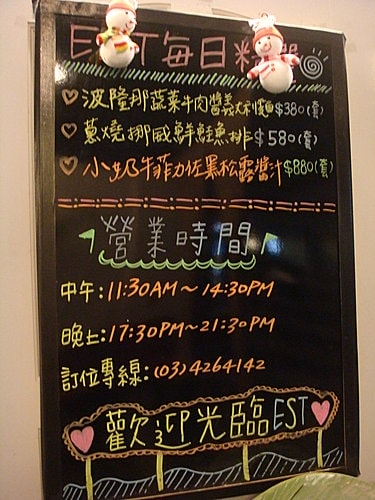 EST每日精選
波隆那蔬菜牛肉醬義大利麵$380(套)
蔥燒挪威鮮鮭魚排$580(套)
小奶牛菲力佐黑松露醬汁$880(套)
營業時間
中午:11:30AM~14:30PM
晚上:17:30PM~21:30PM
訂位專線:(03)4264142
歡迎光臨EST